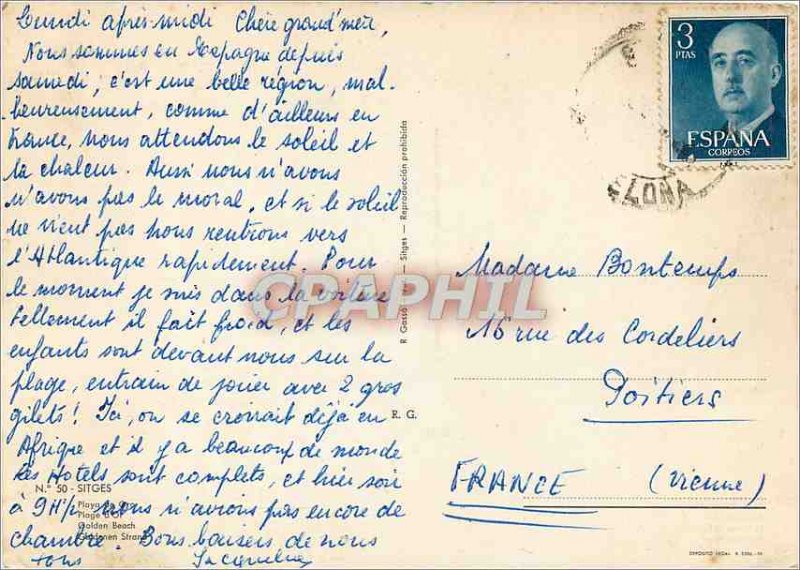 Lundi après-midi Chère grand'mère,
Nous sommes en Espagne depuis
samedi; c'est une belle région, mal-
heureusement, comme d'ailleurs en
France, nous attendons le soleil et
la chaleur. Aussi nous n'avons
n'avons pas le moral, et si le soleil
ne vient pas nous rentrons vers
l'Atlantique rapidement. Pour
le moment je suis dans la voiture
tellement il fait froid, et les
enfants sont devant nous sur la
plage, entrain de jouer avec 2 gros
gilets! Ici, on se croirait déjà en
Afrique et il y a beaucoup de monde
Les Hotels sont complets, et hier soir
à 9H½ nous n'avions pas encore de
chambre. Bons baisers de nous
tous Jacqueline
N.° 50 - SITGES
Playa de Oro
Plage d'Or
Golden Beach
Goldenen Strand
R. G.
Sitges — Reproducción prohibida
CPAPHIL
3
PTAS
ESPAÑA
CORREOS
ELONA
Madame Bontemps
16 rue des Cordeliers
Poitiers
FRANCE (Vienne)